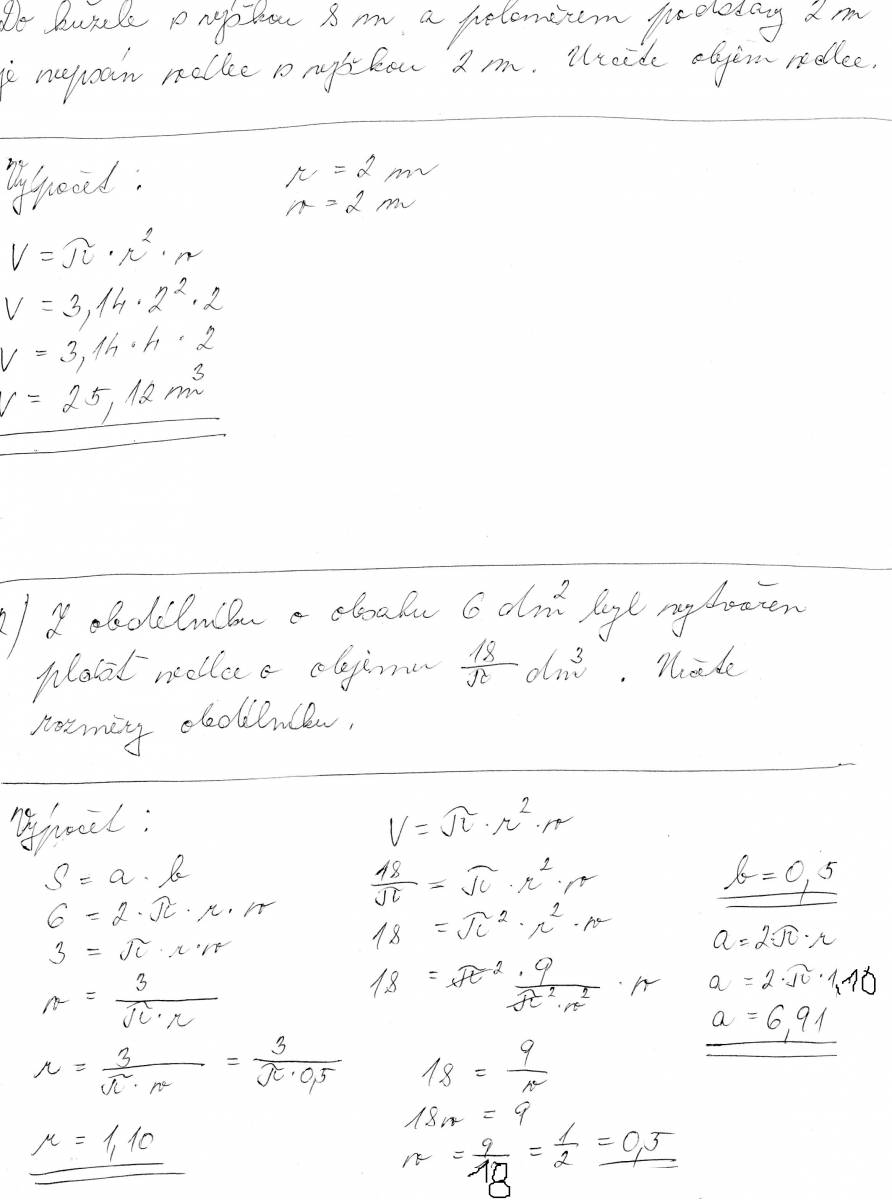 Do kužele s výškou 8 m a poloměrem podstavy 2 m
je vepsán válec s výškou 2 m. Určete objem válce.
Výpočet:
r = 2 m
v = 2 m
V = π · r² · v
V = 3,14 · 2² · 2
V = 3,14 · 4 · 2
V = 25,12 m³
2) Z obdélníku o obsahu 6 dm² byl vytvořen
plášť válce o objemu 18/π dm³. Určete
rozměry obdélníku.
Výpočet:
S = a · b
6 = 2 · π · r · v
3 = π · r · v
v = 3/(π · r)
r = 3/(π · v) = 3/(π · 0,5)
r = 1,10
V = π · r² · v
18/π = π · r² · v
18 = π² · r² · v
18 = π² · 9/(π² · v²) · v
18 = 9/v
18v = 9
v = 9/18 = 1/2 = 0,5
b = 0,5
a = 2·π · r
a = 2 · π · 1,10
a = 6,91